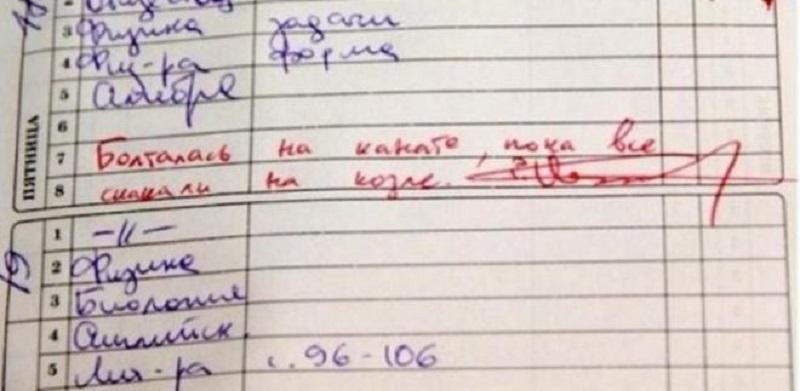 3 Физика задачи
4 Физ-ра форма
5 Алгебра
6
7 Болталась на канате, пока все
8 скакали на козле.
ПЯТНИЦА
19
1 -//-
2 Физика
3 Биология
4 Английск.
5 Лит-ра с. 96-106